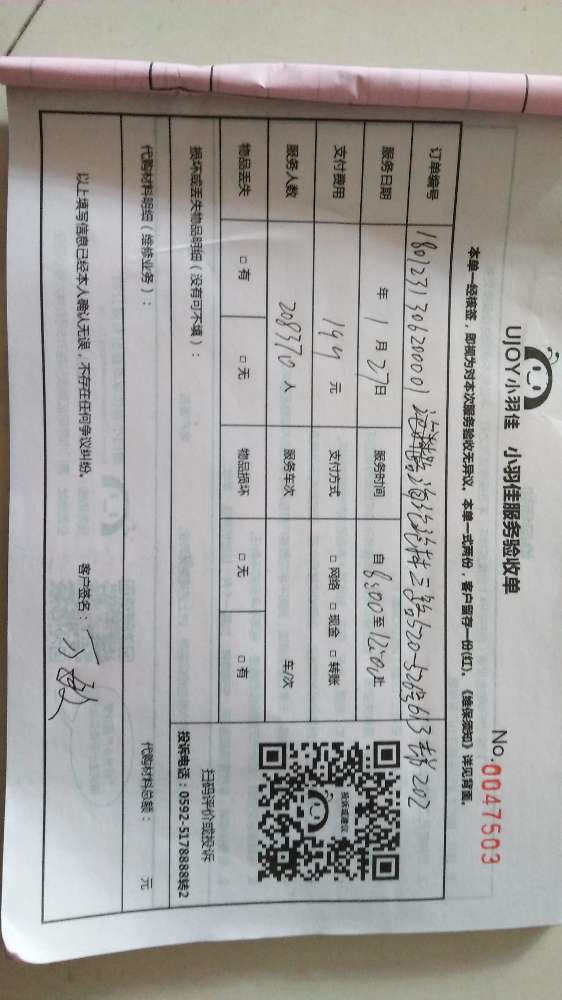 UJOY小羽佳 小羽佳服务验收单
No.0047503
本单一经核签，即视为对本次服务验收无异议。本单一式两份，客户留存一份(红)。《维保须知》详见背面。
订单编号 180123130620001
服务日期 年 1 月 27 日 服务时间 自 8:00 至 12:00 止
支付费用 194 元 支付方式 □ 网络 □ 现金 □ 转账
服务人数 208370 人 服务车次 车/次
物品丢失 □ 有 □ 无 物品损坏 □ 无 □ 有
投诉或建议
扫码评价或投诉
投诉电话：0592-5178888转2
损坏或丢失物品明细（没有可不填）：
代购材料明细（维修业务）： 代购材料总额： 元
以上填写信息已经本人确认无误，不存在任何争议纠纷。 客户签名：